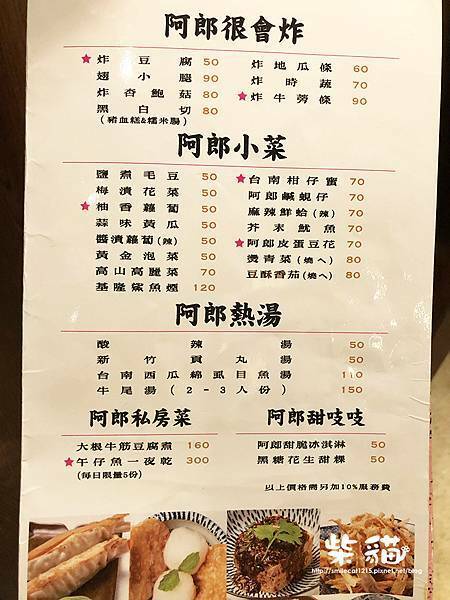 阿郎很會炸
★炸豆腐 50
翅小腿 90
炸杏鮑菇 80
黑白切 80
(豬血糕&糯米腸)
炸地瓜條 60
炸時蔬 70
★炸牛蒡條 90
阿郎小菜
鹽煮毛豆 50
梅漬花菜 50
★柚香蘿蔔 50
蒜味黃瓜 50
醬漬蘿蔔(辣) 50
黃金泡菜 50
高山高麗菜 70
基隆鯊魚煙 120
★台南柑仔蜜 70
阿郎鹹蜆仔 70
麻辣鮮蛤(辣) 70
芥末魷魚 70
★阿郎皮蛋豆花 70
燙青菜(燒ㄟ) 80
豆酥番茄(燒ㄟ) 80
阿郎熱湯
酸辣湯 50
新竹貢丸湯 50
台南西瓜綿虱目魚湯 110
牛尾湯(2-3人份) 150
阿郎私房菜
大根牛筋豆腐煮 160
★午仔魚一夜乾 300
(每日限量5份)
阿郎甜吱吱
阿郎甜脆冰淇淋 50
黑糖花生甜粿 50
以上價格需另加10%服務費
柴貓
http://smilecat1215.pixnet.net/blog